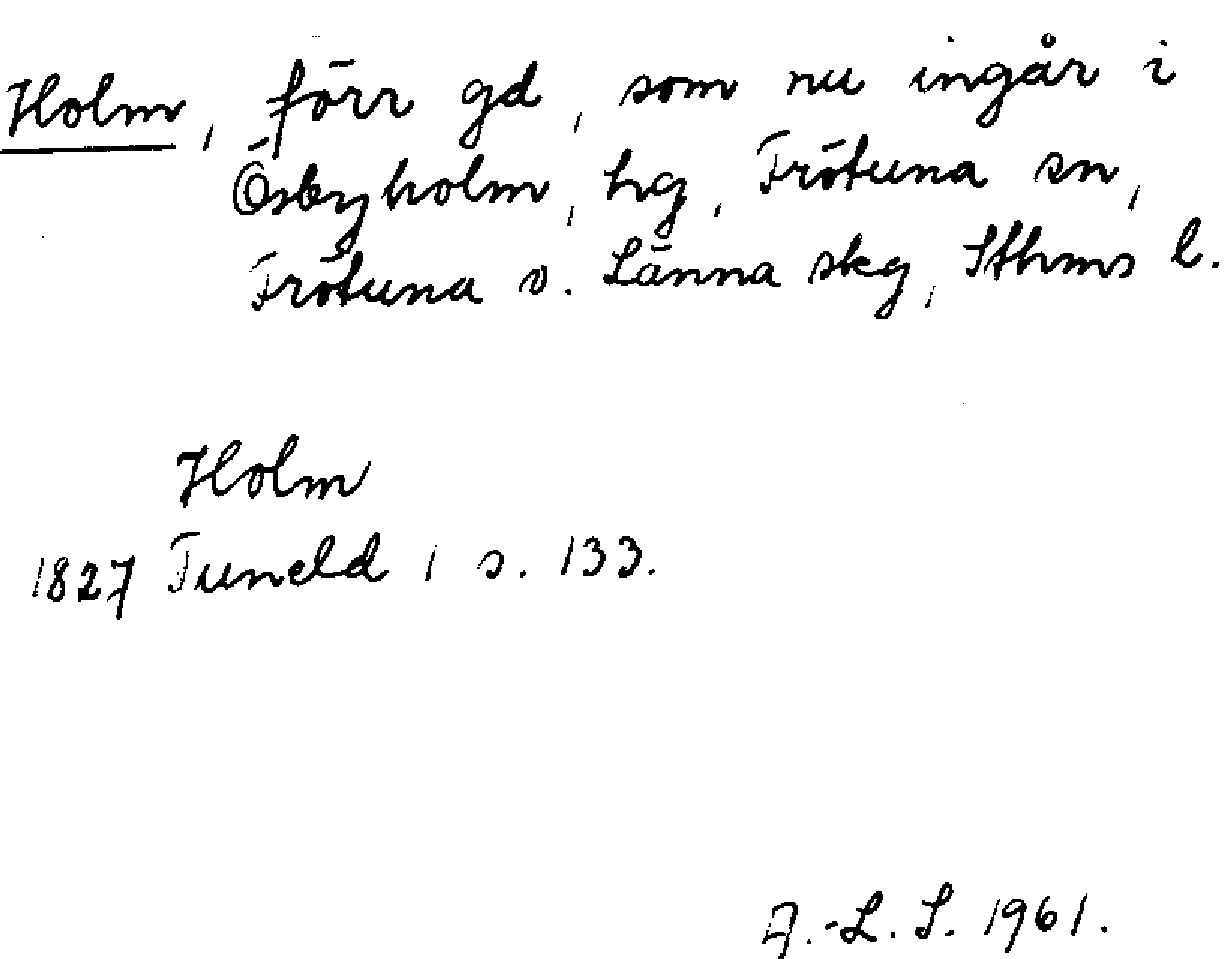 Holm, förr gd, som nu ingår i
Össbyholm, hg, Frötuna sn,
Frötuna o. Länna skg, Sthms l.
Holm
1827 Tuneld 1 s. 133.
A.-L. S. 1961.